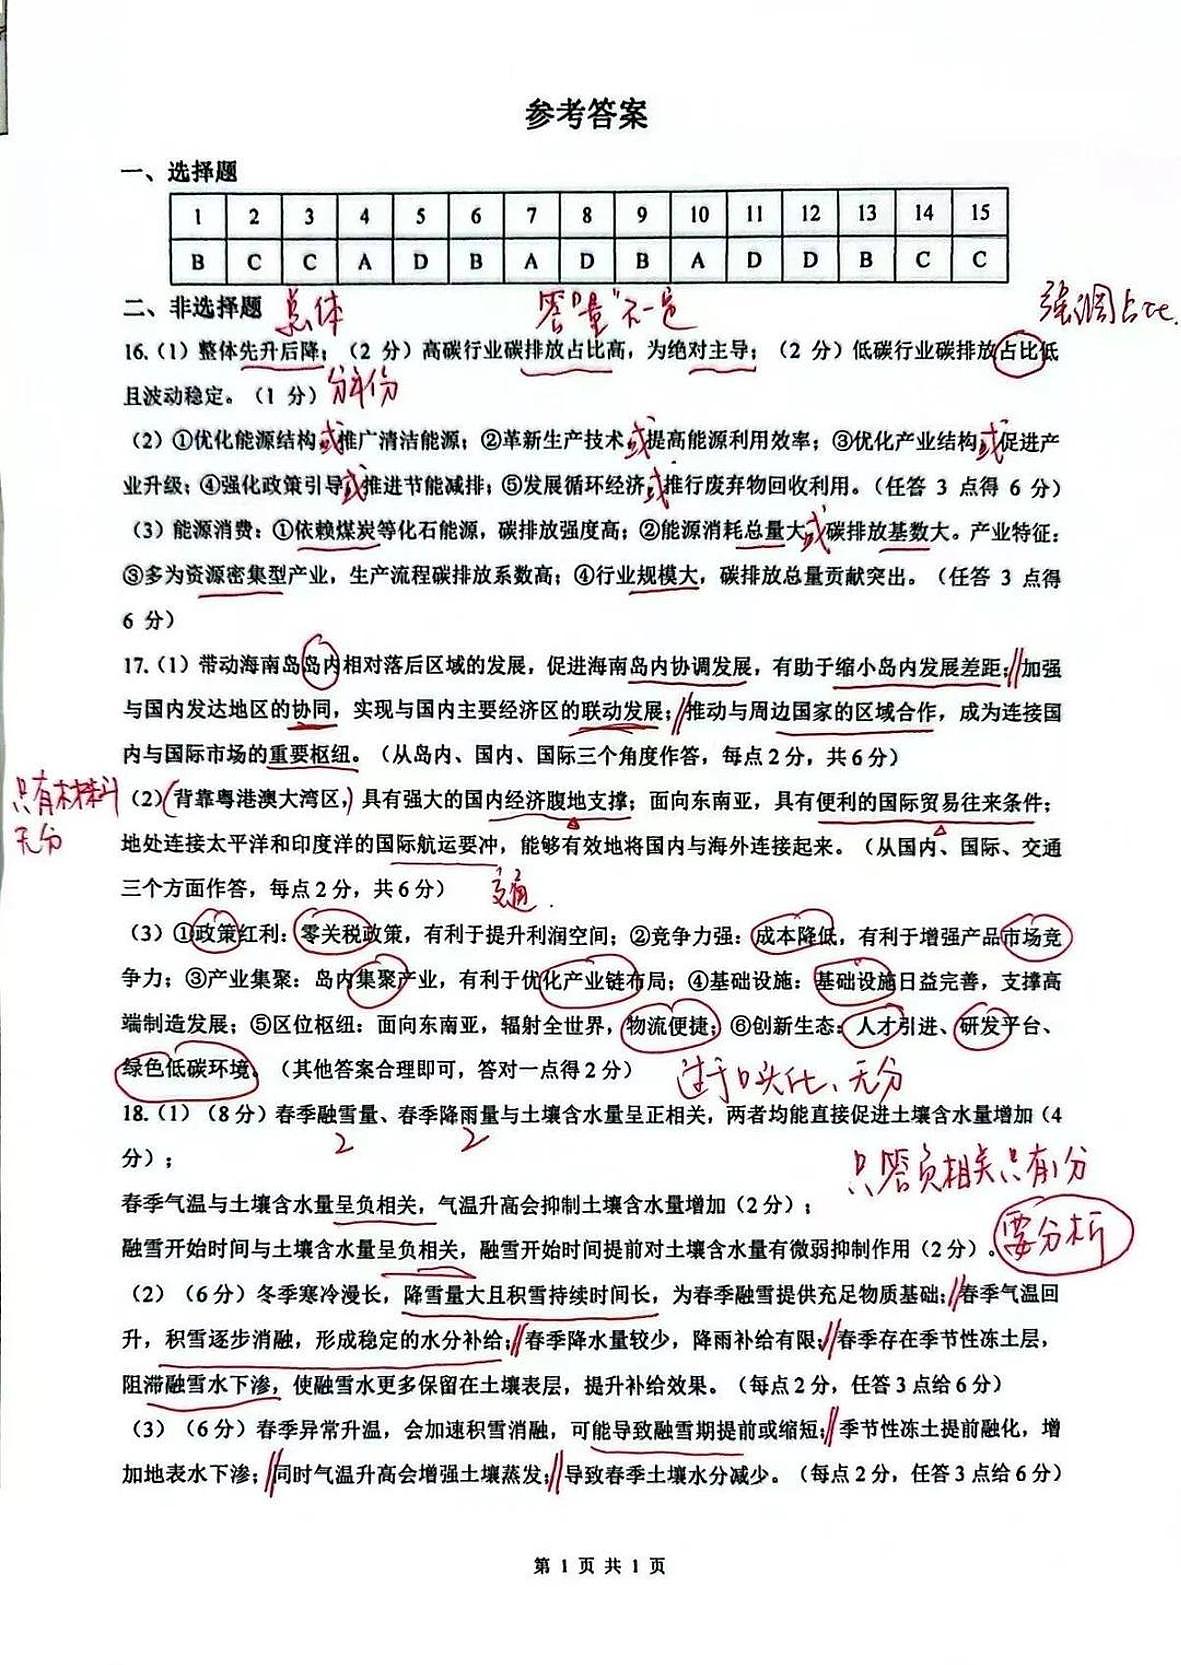 参考答案
一、选择题
1 2 3 4 5 6 7 8 9 10 11 12 13 14 15
B C C A D B A D B A D D B C C
二、非选择题 总体 答“量”不一定 强调占比.
16.（1）整体先升后降；（2 分）高碳行业碳排放占比高，为绝对主导；（2 分）低碳行业碳排放占比低
且波动稳定。（1 分）分年份
（2）①优化能源结构或推广清洁能源；②革新生产技术或提高能源利用效率；③优化产业结构或促进产
业升级；④强化政策引导或推进节能减排；⑤发展循环经济或推行废弃物回收利用。（任答 3 点得 6 分）
（3）能源消费：①依赖煤炭等化石能源，碳排放强度高；②能源消耗总量大或碳排放基数大。产业特征：
③多为资源密集型产业，生产流程碳排放系数高；④行业规模大，碳排放总量贡献突出。（任答 3 点得
6 分）
17.（1）带动海南岛岛内相对落后区域的发展，促进海南岛内协调发展，有助于缩小岛内发展差距；加强
与国内发达地区的协同，实现与国内主要经济区的联动发展；推动与周边国家的区域合作，成为连接国
内与国际市场的重要枢纽。（从岛内、国内、国际三个角度作答，每点2分，共6分）
只有材料
无分
（2）（背靠粤港澳大湾区，）具有强大的国内经济腹地支撑；面向东南亚，具有便利的国际贸易往来条件；
地处连接太平洋和印度洋的国际航运要冲，能够有效地将国内与海外连接起来。（从国内、国际、交通
三个方面作答，每点2分，共6分） 交通.
（3）①政策红利：零关税政策，有利于提升利润空间；②竞争力强：成本降低，有利于增强产品市场竞
争力；③产业集聚：岛内集聚产业，有利于优化产业链布局；④基础设施：基础设施日益完善，支撑高
端制造发展；⑤区位枢纽：面向东南亚，辐射全世界，物流便捷；⑥创新生态：人才引进、研发平台、
绿色低碳环境。（其他答案合理即可，答对一点得2分） 过于口头化、无分
18.（1）（8分）春季融雪量、春季降雨量与土壤含水量呈正相关，两者均能直接促进土壤含水量增加（4
2 2
分）； 只答负相关只有1分
春季气温与土壤含水量呈负相关，气温升高会抑制土壤含水量增加（2分）；
要分析
融雪开始时间与土壤含水量呈负相关，融雪开始时间提前对土壤含水量有微弱抑制作用（2分）。
（2）（6分）冬季寒冷漫长，降雪量大且积雪持续时间长，为春季融雪提供充足物质基础；春季气温回
升，积雪逐步消融，形成稳定的水分补给；春季降水量较少，降雨补给有限；春季存在季节性冻土层，
阻滞融雪水下渗，使融雪水更多保留在土壤表层，提升补给效果。（每点2分，任答3点给6分）
（3）（6分）春季异常升温，会加速积雪消融，可能导致融雪期提前或缩短；季节性冻土提前融化，增
加地表水下渗；同时气温升高会增强土壤蒸发；导致春季土壤水分减少。（每点2分，任答3点给6分）
第 1 页 共 1 页